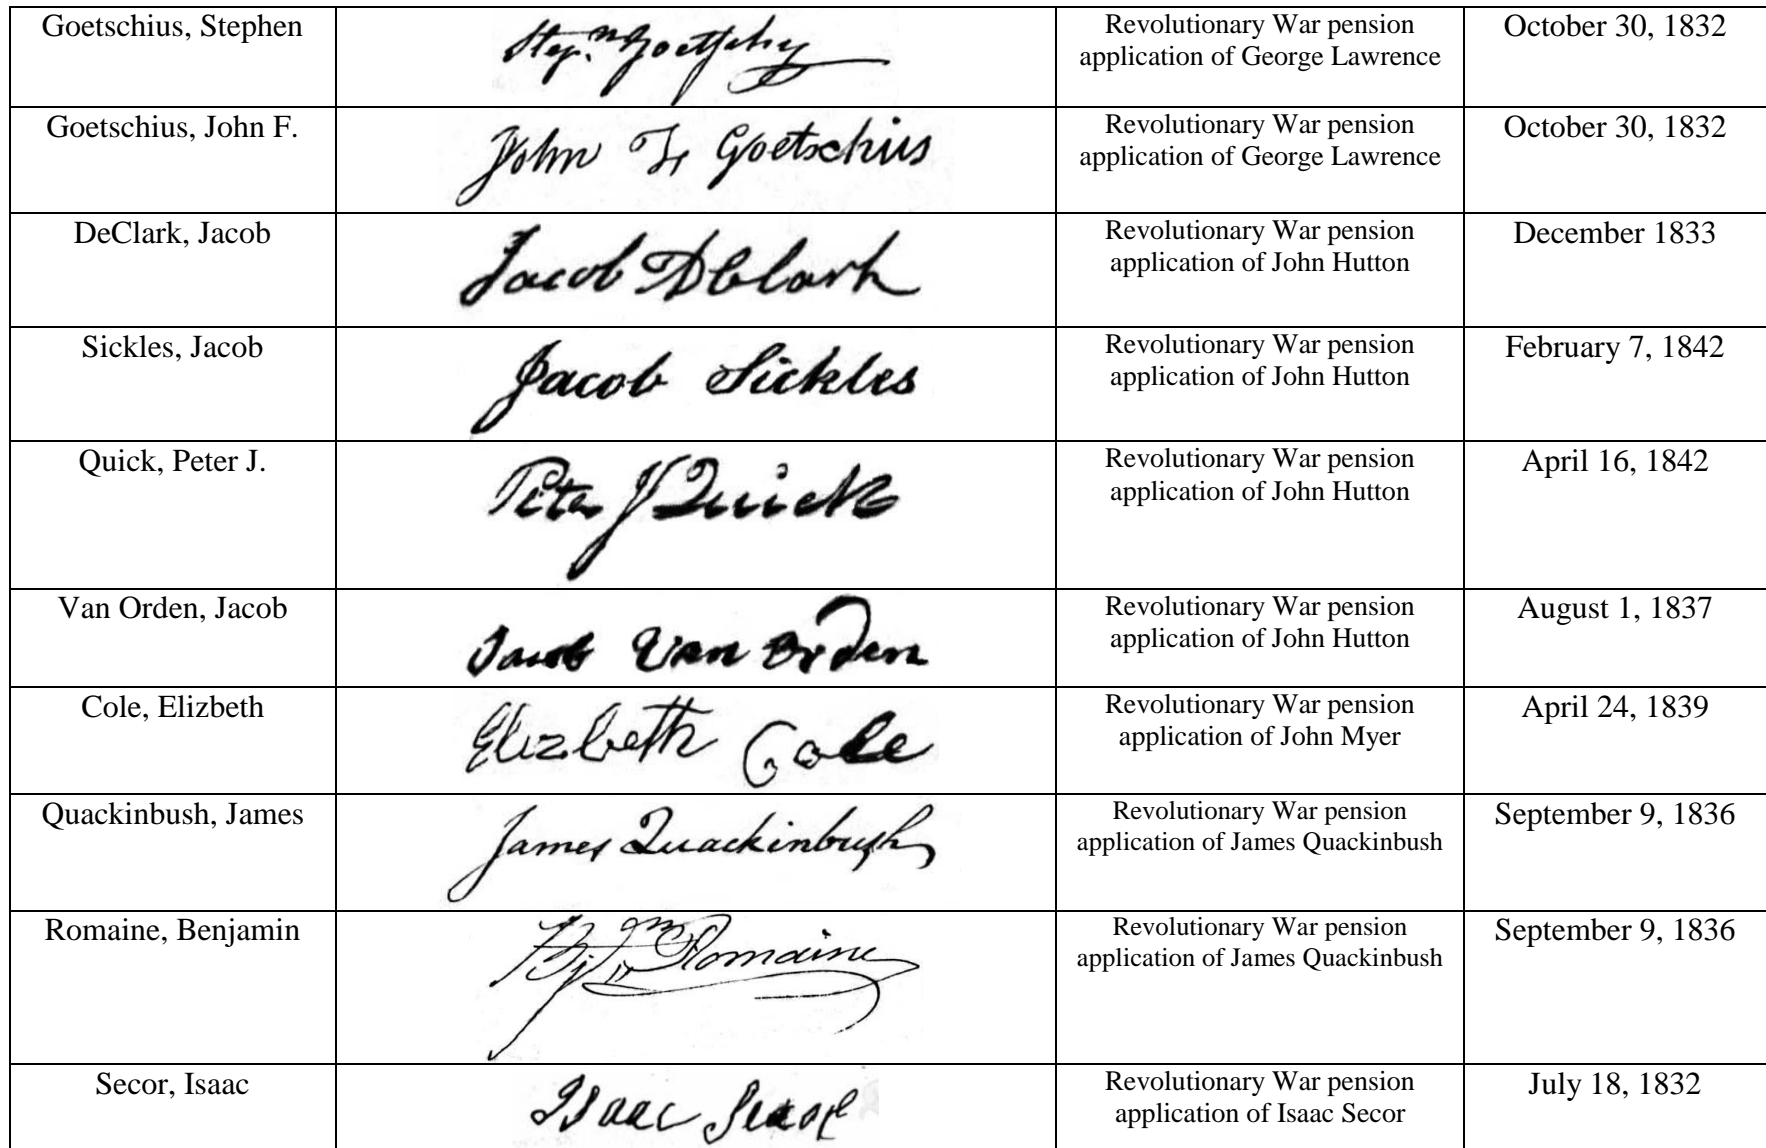 Goetschius, Stephen
Stepn Goetschy
Revolutionary War pension
application of George Lawrence
October 30, 1832
Goetschius, John F.
John F. Goetschius
Revolutionary War pension
application of George Lawrence
October 30, 1832
DeClark, Jacob
Jacob DClark
Revolutionary War pension
application of John Hutton
December 1833
Sickles, Jacob
Jacob Sickles
Revolutionary War pension
application of John Hutton
February 7, 1842
Quick, Peter J.
Peter J Quick
Revolutionary War pension
application of John Hutton
April 16, 1842
Van Orden, Jacob
Jacob Van Orden
Revolutionary War pension
application of John Hutton
August 1, 1837
Cole, Elizbeth
Elizbeth Cole
Revolutionary War pension
application of John Myer
April 24, 1839
Quackinbush, James
James Quackinbush
Revolutionary War pension
application of James Quackinbush
September 9, 1836
Romaine, Benjamin
Bjn Romaine
Revolutionary War pension
application of James Quackinbush
September 9, 1836
Secor, Isaac
Isaac Secor
Revolutionary War pension
application of Isaac Secor
July 18, 1832